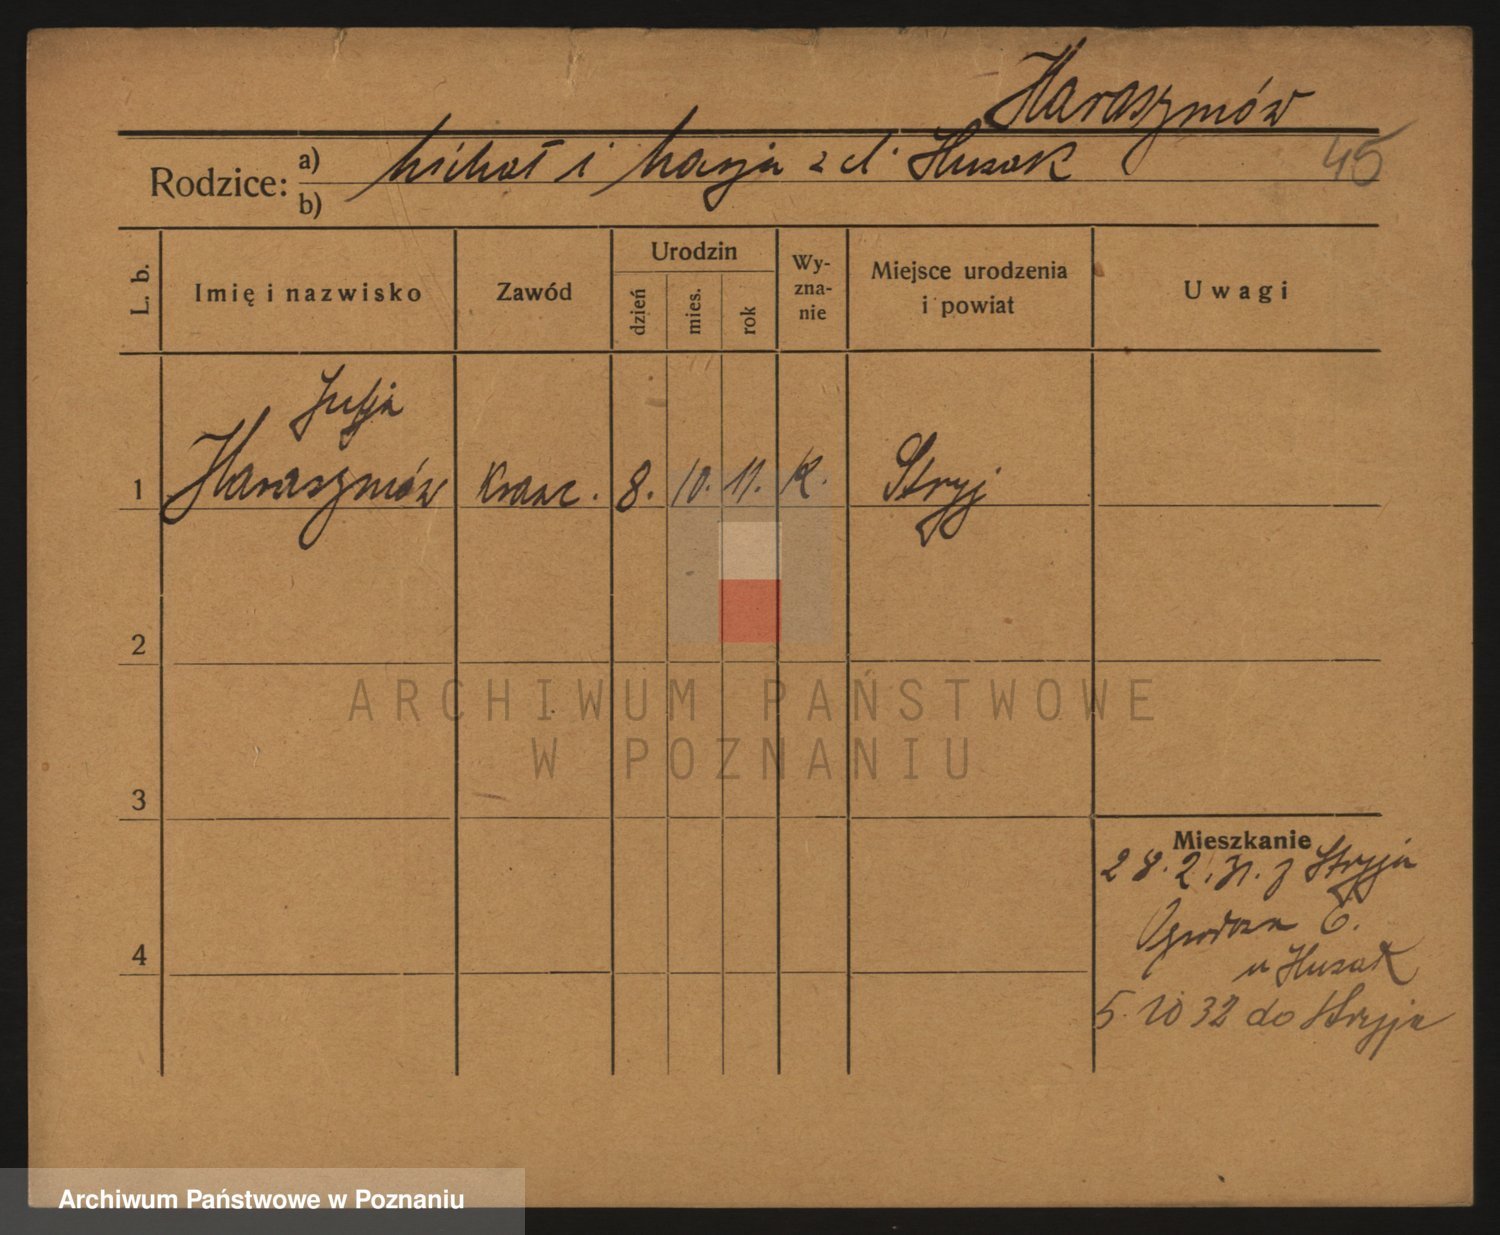 Haraszmów
45
Rodzice: a) Michał i Marja z d. Husak
b)
L. b.
Imię i nazwisko
Zawód
Urodzin
dzień
mies.
rok
Wy-
zna-
nie
Miejsce urodzenia
i powiat
Uwagi
Julja
1 Haraszmów Krawc. 8. 10. 11. K. Stryj
2
3
4
Mieszkanie
28.2.31. z Stryja
6.
u Husak
5. 10 32 do Stryja
ARCHIWUM PAŃSTWOWE
W POZNANIU
Archiwum Państwowe w Poznaniu